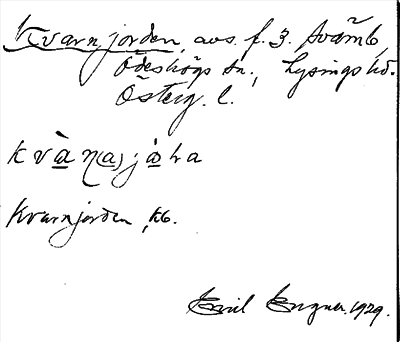 Kvarnjorden, avs. f. 3. Svämb,
Ödeshögs sn., Lysings hd.
Österg. l.
kvàɳ(a)jo̱ḷa
Kvarnjorden, kb.
Emil Engner. 1929.